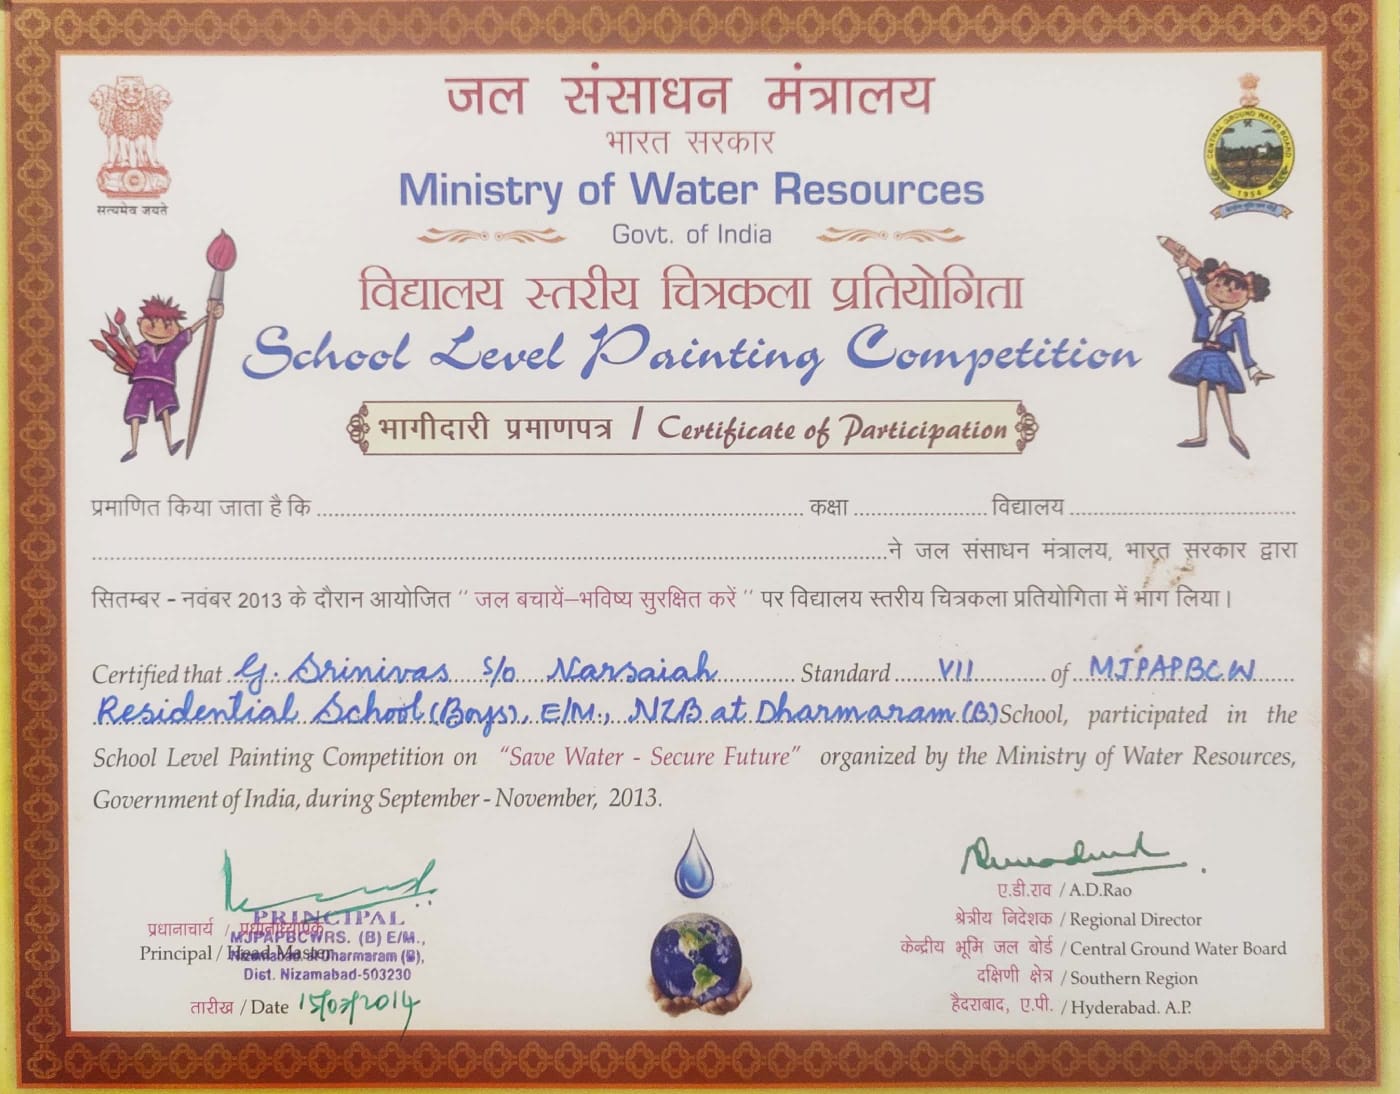 जल संसाधन मंत्रालय
भारत सरकार
Ministry of Water Resources
Govt. of India
सत्यमेव जयते
CENTRAL GROUND WATER BOARD
1954
विद्यालय स्तरीय चित्रकला प्रतियोगिता
School Level Painting Competition
भागीदारी प्रमाणपत्र / Certificate of Participation
प्रमाणित किया जाता है कि ........ कक्षा ........ विद्यालय ........
........ ने जल संसाधन मंत्रालय, भारत सरकार द्वारा
सितम्बर - नवंबर 2013 के दौरान आयोजित " जल बचायें–भविष्य सुरक्षित करें " पर विद्यालय स्तरीय चित्रकला प्रतियोगिता में भाग लिया।
Certified that G. Srinivas S/o Narsaiah Standard VII of MJPAPBCW
Residential School (Boys), E/M., NZB at Dharmaram (B) School, participated in the
School Level Painting Competition on "Save Water - Secure Future" organized by the Ministry of Water Resources,
Government of India, during September - November, 2013.
प्रधानाचार्य / प्रधानाध्यापक
Principal / Head Master
PRINCIPAL
MJPAPBCWRS. (B) E/M.,
Nizamabad at Dharmaram (B),
Dist. Nizamabad-503230
तारीख / Date 15/07/2014
ए.डी.राव / A.D.Rao
श्रेत्रीय निदेशक / Regional Director
केन्द्रीय भूमि जल बोर्ड / Central Ground Water Board
दक्षिणी क्षेत्र / Southern Region
हैदराबाद, ए.पी. / Hyderabad. A.P.